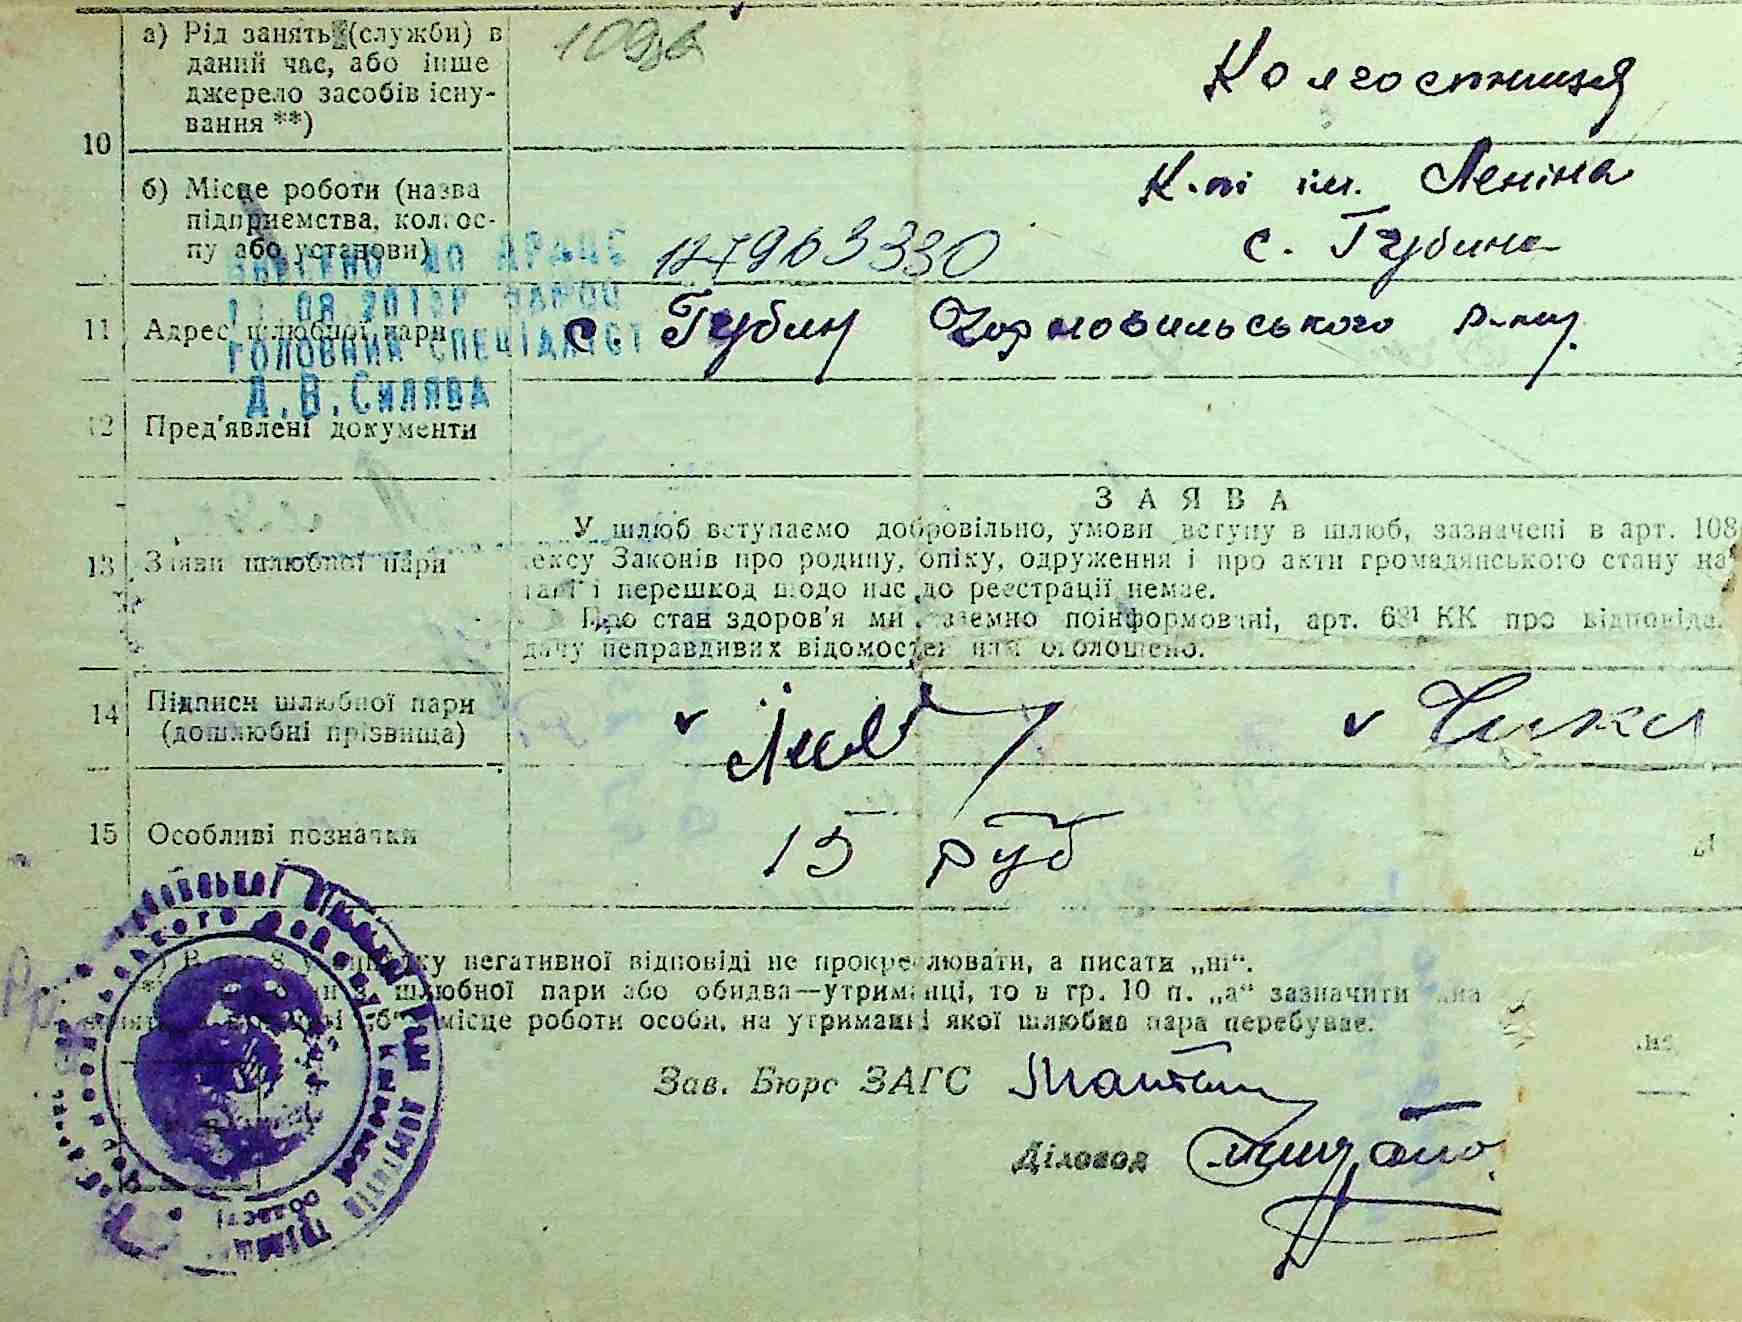 10
а) Рід занять (служби) в
даний час, або інше
джерело засобів існу-
вання **)
Колгоспниця
б) Місце роботи (назва
підприємства, колгос-
пу або установи)
К-пі ім. Леніна
с. Губина
127963330
ВНЕСЕНО ДО ДРАЦС
ГОЛОВНИЙ СПЕЦІАЛІСТ
Д.В.Силява
11 Адрес шлюбної пари
с. Губин Чорнобильського р-ну.
12 Пред'явлені документи
13 Заяви шлюбної пари
ЗАЯВА
У шлюб вступаємо добровільно, умови вступу в шлюб, зазначені в арт. 108
ексу Законів про родину, опіку, одруження і про акти громадянського стану на
і перешкод щодо нас до реєстрації немає.
Про стан здоров'я ми взаємно поінформовані, арт. 68¹ КК про відповіда
дачу неправдивих відомостей нам оголошено.
14 Підписи шлюбної пари
(дошлюбні прізвища)
15 Особливі позначки
15 руб
у випадку негативної відповіді не прокреслювати, а писати „ні“.
шлюбної пари або обидва—утриманці, то в гр. 10 п. „а“ зазначити
„б“ місце роботи особи, на утриманні якої шлюбна пара перебуває.
Зав. Бюро ЗАГС
Діловод